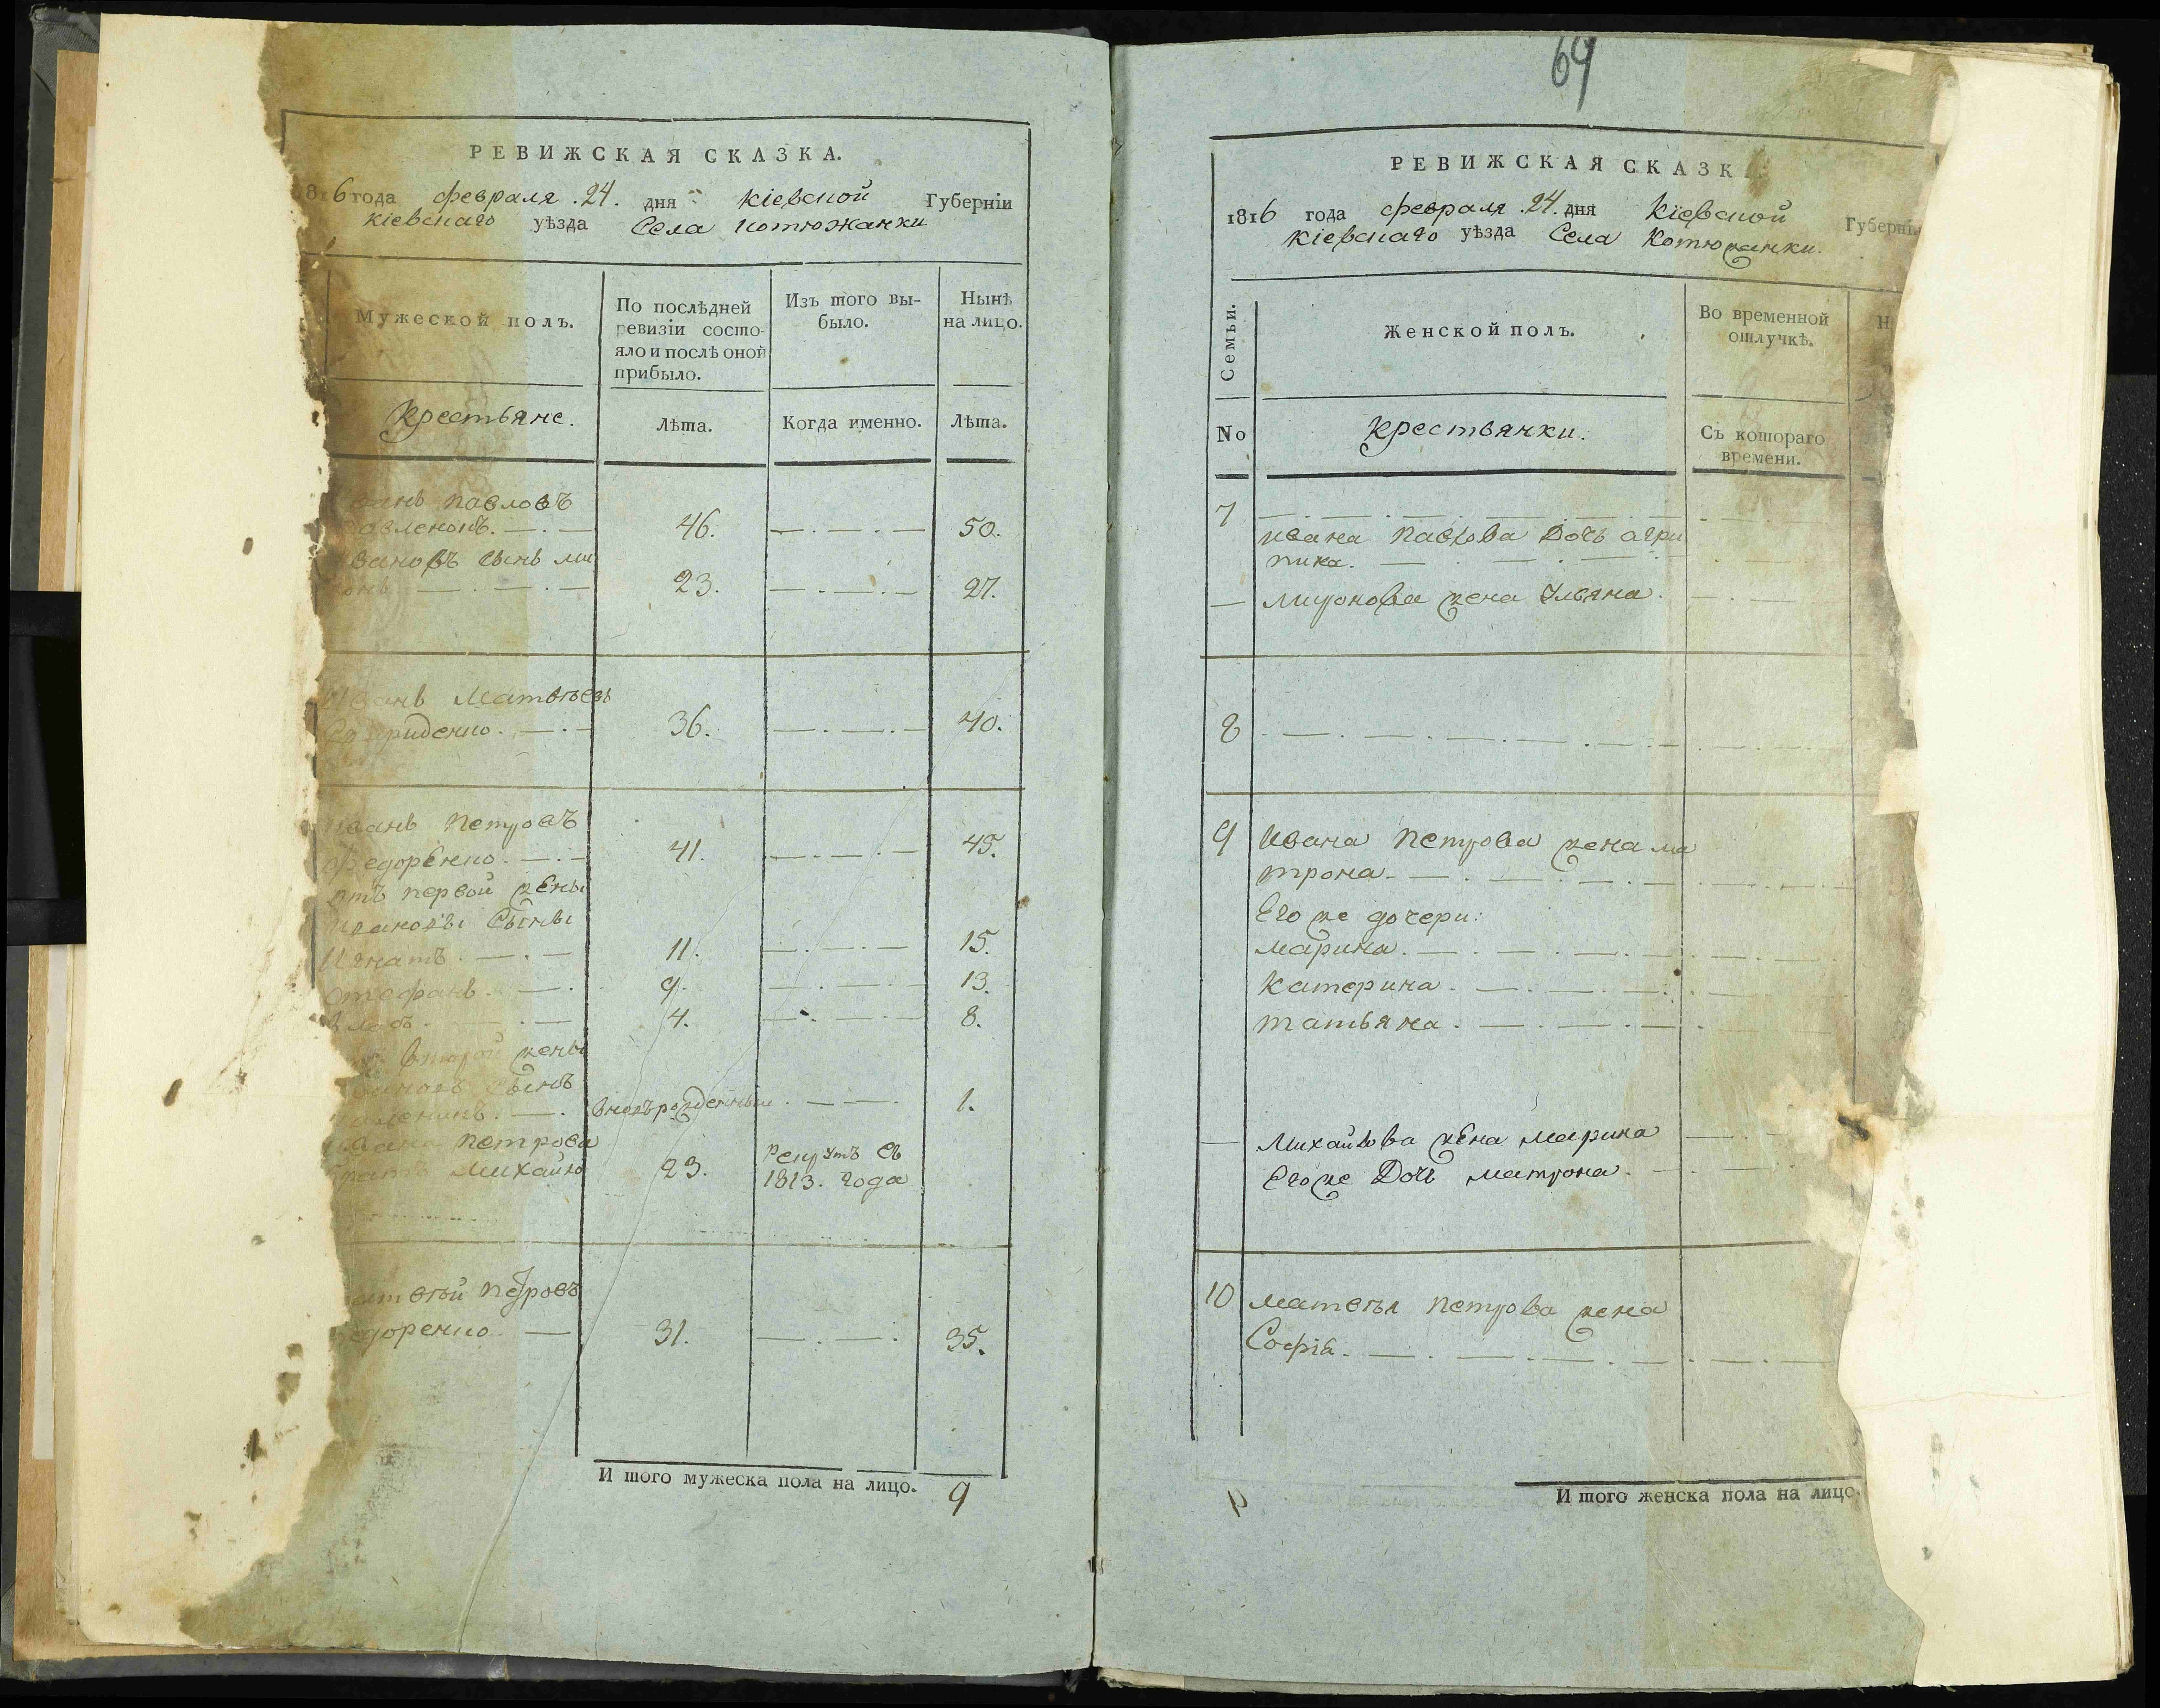 РЕВИЖСКАЯ СКАЗКА.
1816 года февраля .24. дня Кіевской Губерніи
Кіевскаго уѣзда Села Котюжанки
Мужеской полъ.
По послѣдней ревизіи состо-
яло и послѣ оной
прибыло.
Изъ того вы-
было.
Нынѣ
на лицо.
Крестьяне.
Лѣта.
Когда именно.
Лѣта.
Павловъ
46. 50.
сынъ Ми
23. 27.
Иванъ Матвѣевъ
36. 40.
Иванъ Петровъ
Федоренко. 41. 45.
отъ первой жены
Ивановы Сыны
Игнатъ. 11. 15.
Стефанъ. 9. 13.
4. 8.
второй жены
Сынъ
вновърожденный. 1.
Ивана Петрова
братъ Михайло 23. Рекрутъ съ
1813. года
Петровъ
31. 35.
И того мужеска пола на лицо. 9
64
РЕВИЖСКАЯ СКАЗК
1816 года февраля .24. дня Кіевской Губерніи
Кіевскаго уѣзда Села Котюжанки.
Семьи.
Женской полъ.
Во временной
отлучкѣ.
No
Крестьянки.
Съ котораго
времени.
7
Ивана Павлова Дочь Агри
пина.
Миронова жена Ульяна.
8
9 Ивана Петрова жена Ма
трона.
Его же дочери:
Марина.
Катерина.
Татьяна.
Михайлова жена Марина
Его же Дочь Матрона.
10 Матвѣя Петрова жена
Софія.
И того женска пола на лицо.